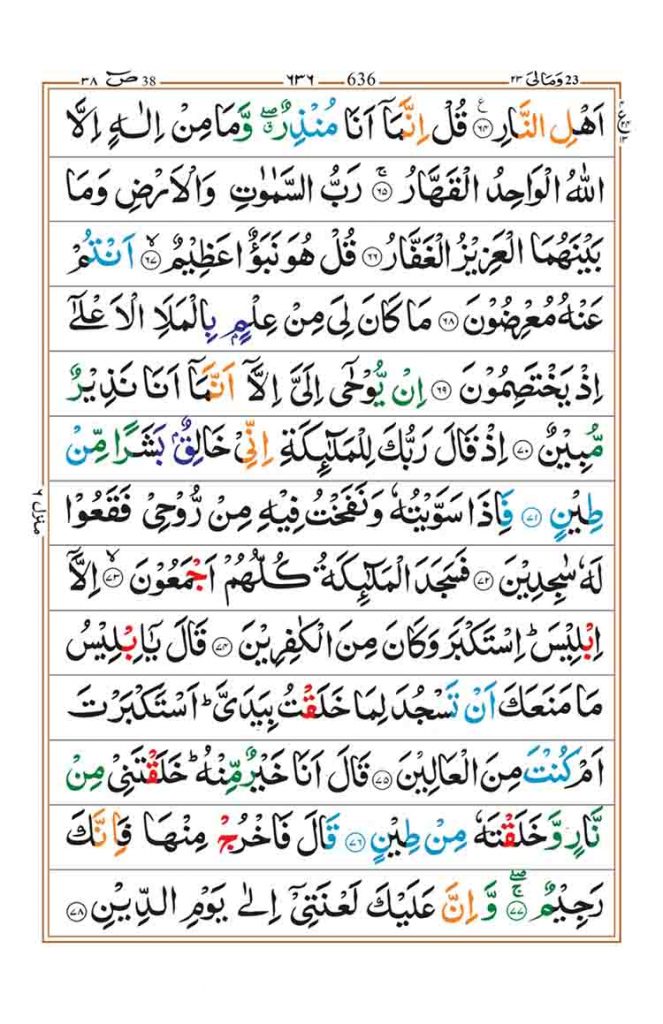 ٣٨ صٓ 38 ٦٣٦ 636 ٢٣ وَمَالِیَ 23
اَهْلِ النَّارِ ﴿٦٤﴾ ع قُلْ اِنَّمَاۤ اَنَا مُنْذِرٌ ۖۗ وَّمَا مِنْ اِلٰهٍ اِلَّا
اللّٰهُ الْوَاحِدُ الْقَهَّارُ ۚ ﴿٦٥﴾ رَبُّ السَّمٰوٰتِ وَالْاَرْضِ وَمَا
بَيْنَهُمَا الْعَزِيْزُ الْغَفَّارُ ﴿٦٦﴾ قُلْ هُوَ نَبَؤٌا عَظِيْمٌ ۙ ﴿٦٧﴾ اَنْتُمْ
عَنْهُ مُعْرِضُوْنَ ﴿٦٨﴾ مَا كَانَ لِیَ مِنْ عِلْمٍۭ بِالْمَلَاِ الْاَعْلٰۤی
اِذْ يَخْتَصِمُوْنَ ﴿٦٩﴾ اِنْ يُّوْحٰۤی اِلَیَّ اِلَّاۤ اَنَّمَاۤ اَنَا نَذِيْرٌ
مُّبِيْنٌ ﴿٧٠﴾ اِذْ قَالَ رَبُّكَ لِلْمَلٰٓئِكَةِ اِنِّیْ خَالِقٌۢ بَشَرًا مِّنْ
طِيْنٍ ﴿٧١﴾ فَاِذَا سَوَّيْتُهٗ وَنَفَخْتُ فِيْهِ مِنْ رُّوْحِیْ فَقَعُوْا
لَهٗ سٰجِدِيْنَ ﴿٧٢﴾ فَسَجَدَ الْمَلٰٓئِكَةُ كُلُّهُمْ اَجْمَعُوْنَ ۙ ﴿٧٣﴾ اِلَّاۤ
اِبْلِيْسَ ؕ اِسْتَكْبَرَ وَكَانَ مِنَ الْكٰفِرِيْنَ ﴿٧٤﴾ قَالَ يٰۤاِبْلِيْسُ
مَا مَنَعَكَ اَنْ تَسْجُدَ لِمَا خَلَقْتُ بِيَدَیَّ ؕ اَسْتَكْبَرْتَ
اَمْ كُنْتَ مِنَ الْعَالِيْنَ ﴿٧٥﴾ قَالَ اَنَا خَيْرٌ مِّنْهُ ؕ خَلَقْتَنِیْ مِنْ
نَّارٍ وَّخَلَقْتَهٗ مِنْ طِيْنٍ ﴿٧٦﴾ قَالَ فَاخْرُجْ مِنْهَا فَاِنَّكَ
رَجِيْمٌ ۖۚ ﴿٧٧﴾ وَّاِنَّ عَلَيْكَ لَعْنَتِیْۤ اِلٰی يَوْمِ الدِّيْنِ ﴿٧٨﴾
منزل ٦